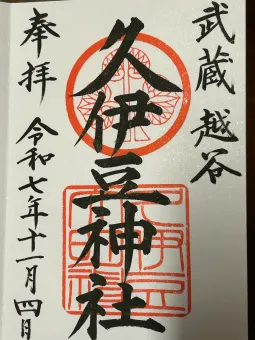 武蔵越谷
久伊豆神社
奉拝
令和七年十一月四日